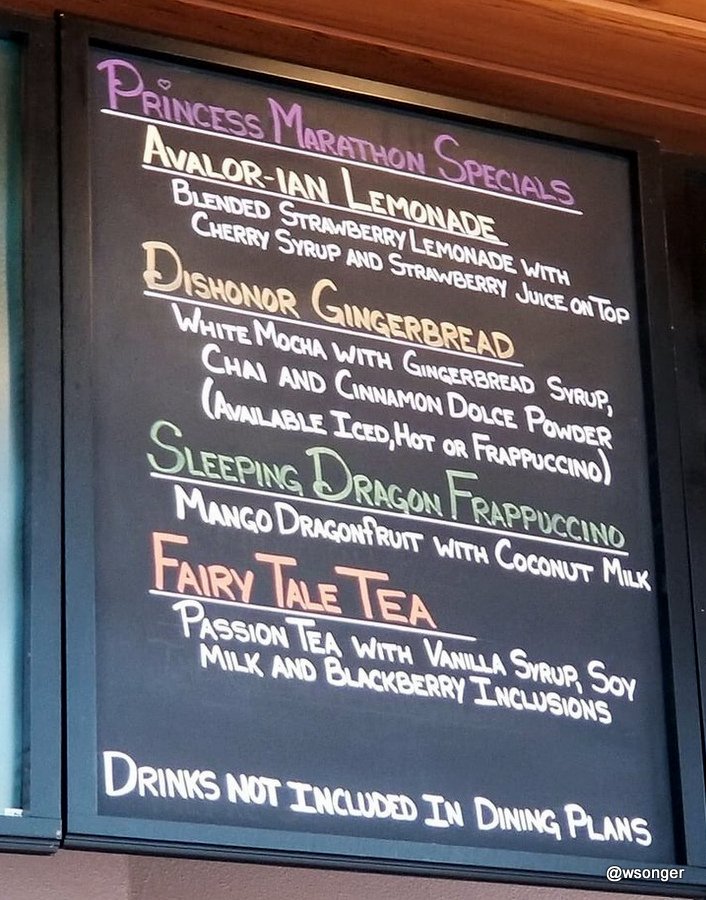 Princess Marathon Specials
Avalor-ian Lemonade
Blended Strawberry Lemonade with
Cherry Syrup and Strawberry Juice on Top
Dishonor Gingerbread
White Mocha with Gingerbread Syrup,
Chai and Cinnamon Dolce Powder
(Available Iced, Hot or Frappuccino)
Sleeping Dragon Frappuccino
Mango Dragonfruit with Coconut Milk
Fairy Tale Tea
Passion Tea with Vanilla Syrup, Soy
Milk and Blackberry Inclusions
Drinks not included in Dining Plans
@wsonger